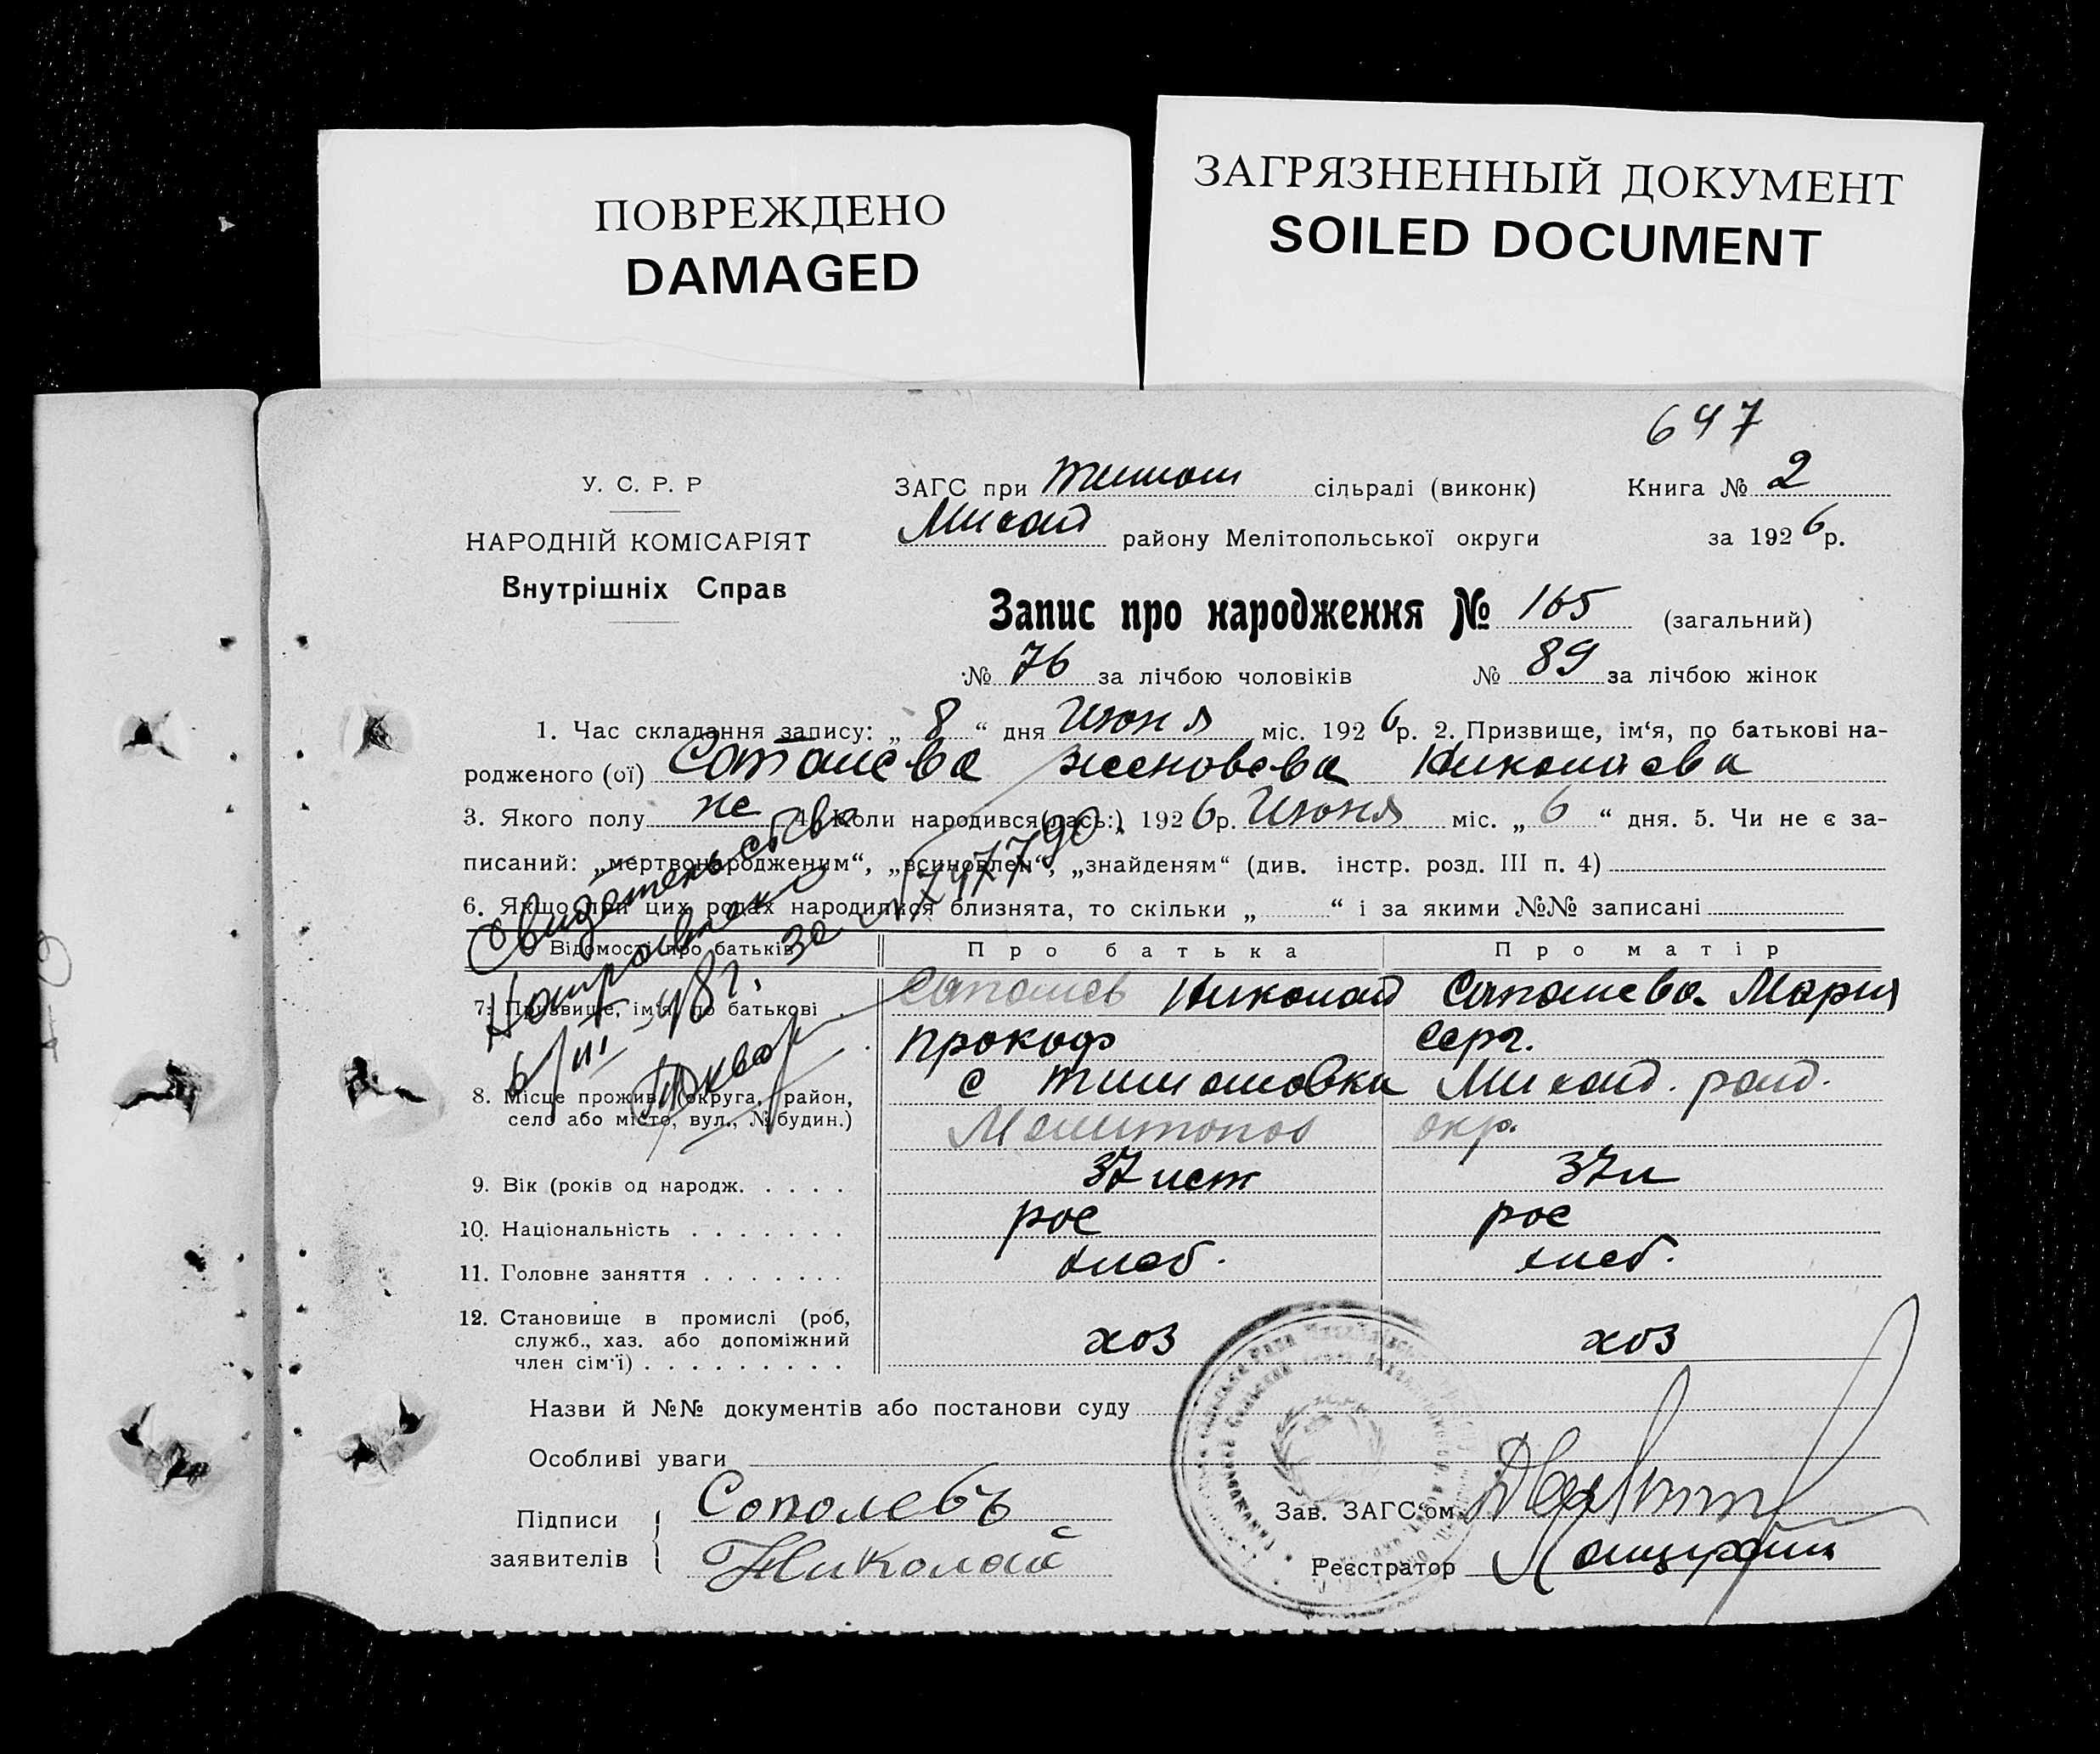 ПОВРЕЖДЕНО
DAMAGED
ЗАГРЯЗНЕННЫЙ ДОКУМЕНТ
SOILED DOCUMENT
647
У. С. Р. Р
НАРОДНІЙ КОМІСАРІЯТ
Внутрішніх Справ
ЗАГС при Тимош сільраді (виконк)
Михайл району Мелітопольської округи
Книга № 2
за 1926р.
Запис про народження № 165 (загальний)
№ 76 за лічбою чоловіків № 89 за лічбою жінок
1. Час складання запису: „ 8 “ дня Июня міс. 1926р. 2. Призвище, ім‘я, по батькові на-
родженого (ої) Николаева
3. Якого полу же 4. Коли народився(лась:) 1926р. Июня міс. „ 6 “ дня. 5. Чи не є за-
писаний: „мертвонародженим“, „всиновлен“, „знайденям“ (див. інстр. розд. III п. 4)
6. Якщо при цих родах народилися близнята, то скільки „ “ і за якими №№ записані
Свидетельство
6/III-48г. за №
Відомості про батьків Про батька Про матір
7. Призвище, ім‘я, по батькові Николай Мария
Прокоф Серг.
8. Місце прожив. (округа, район, с Тимошовка Михайл. район.
село або місто, вул., № будин.) Мелитопол окр.
9. Вік (років од народж. 37 лет 37 л
10. Національність рос рос
11. Головне заняття хлеб. хлеб.
12. Становище в промислі (роб,
служб., хаз. або допоміжний
член сім‘ї) хоз хоз
Назви й №№ документів або постанови суду
Особливі уваги
Підписи
заявителів
Сополевъ
Николай
Зав. ЗАГС‘ом
Реєстратор